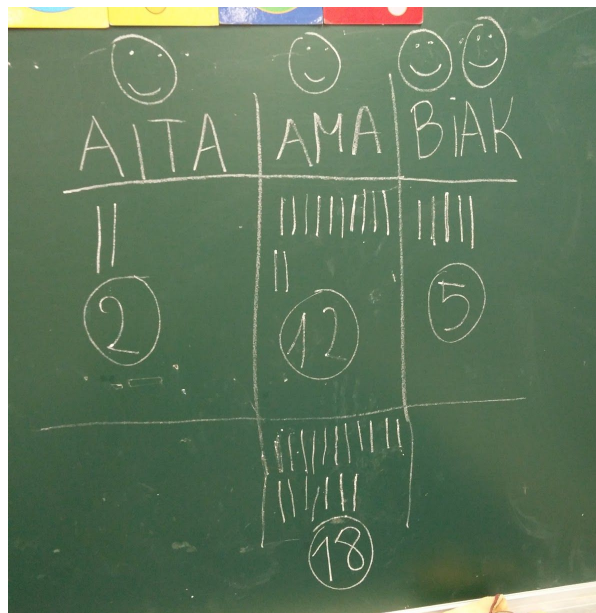 AITA AMA BIAK
2 12 5
18